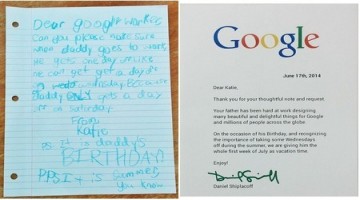 Dear google worker
Can you please make sure
when daddy goes to work
he gets one day off. Like
he can get a day off
on wednesday. Because
daddy ONLY gets a day
off on Saturday.
From,
Katie
P.S. It is daddy's
BIRTHDAY!
P.P.S. It is summer,
you know
Google
June 17th, 2014
Dear Katie,
Thank you for your thoughtful note and request.
Your father has been hard at work designing
many beautiful and delightful things for Google
and millions of people across the globe
On the occasion of his Birthday, and recognizing
the importance of taking some Wednesdays
off during the summer, we are giving him the
whole first week of July as vacation time.
Enjoy!
Daniel Shiplacoff